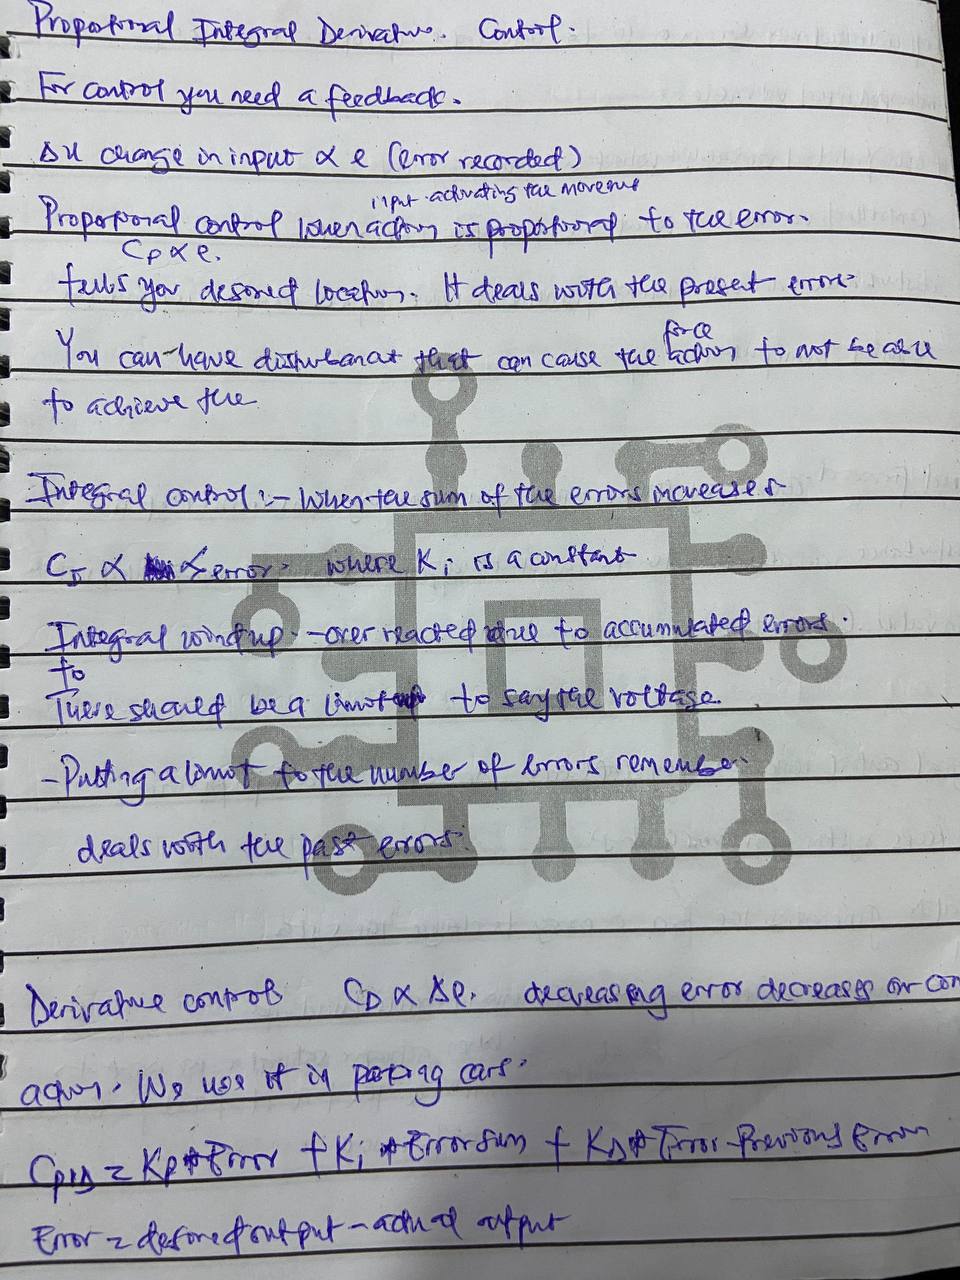 Proportional Integral Derivative. Control:
For control you need a feedback.
Δu change in input ∝ e (error recorded)
input activating the moveme
Proportional control when action is proportional to the error.
Cp ∝ e.
tells you desired location. It deals with the present error.
force
You can have disturbanat that can cause the action to not be able
to achieve the
Integral control:- When the sum of the errors increases
C_I ∝ error. where Ki is a constant
Integral windup - over reacted due to accumulated errors.
to
There should be a limit to say the voltage.
- Putting a limit to the number of errors remember.
deals with the past errors.
Derivative control C_D ∝ Δe. decreasing error decreases or con
action. We use it in parking cars.
C_PID = Kp * Error + Ki * Errorsum + K_D * Error - Previous Error
Error = desired output - actual output